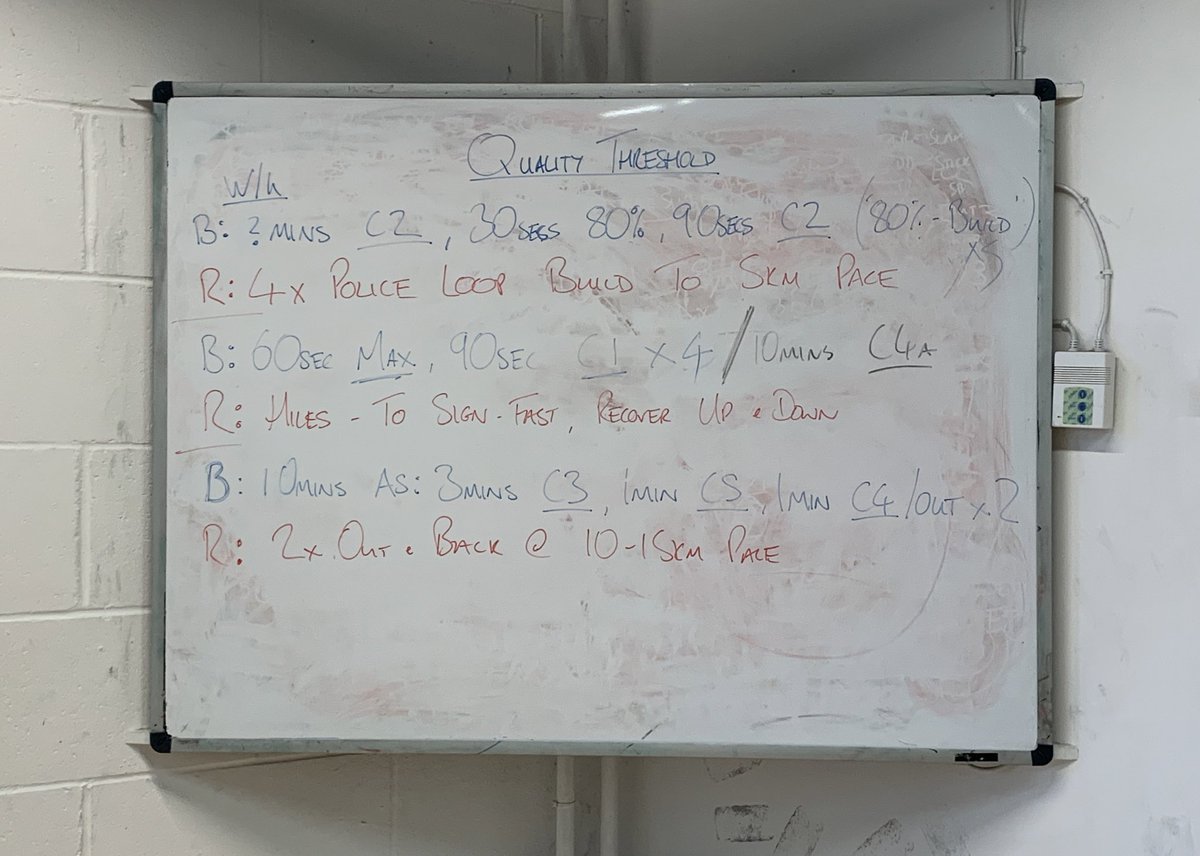 QUALITY THRESHOLD
W/U
B: 2 MINS C2, 30SECS 80%, 90SECS C2 ('80%-BUILD')
x5
R: 4x POLICE LOOP BUILD TO 5KM PACE
B: 60SEC MAX, 90SEC C1 x4 / 10MINS C4A
R: MILES - TO SIGN - FAST, RECOVER UP & DOWN
B: 10MINS AS: 3MINS C3, 1MIN C5, 1MIN C4/OUT x.2
R: 2x OUT & BACK @ 10-15KM PACE